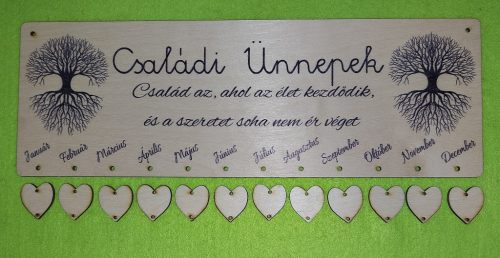 Családi Ünnepek
Család az, ahol az élet kezdődik,
és a szeretet soha nem ér véget
Január Február Március Április Május Június Július Augusztus Szeptember Október November December